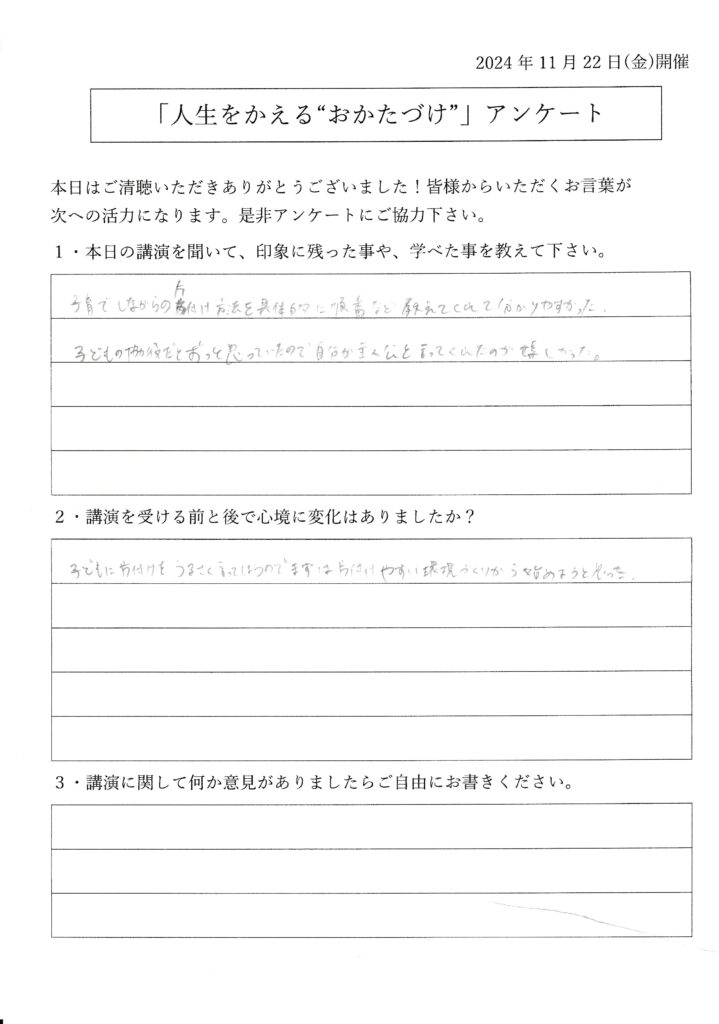 2024 年 11 月 22 日(金)開催
「人生をかえる“おかたづけ”」アンケート
本日はご清聴いただきありがとうございました！皆様からいただくお言葉が
次への活力になります。是非アンケートにご協力下さい。
１・本日の講演を聞いて、印象に残った事や、学べた事を教えて下さい。
子育てしながらの片付け方法を具体的に順番など教えてくれて分かりやすかった。
子どもの脇役だとずっと思っていたので自分が主人公と言ってくれたのが嬉しかった。
２・講演を受ける前と後で心境に変化はありましたか？
子どもに片付けをうるさく言ってしまうのでまずは片付けやすい環境づくりから始めようと思った。
３・講演に関して何か意見がありましたらご自由にお書きください。